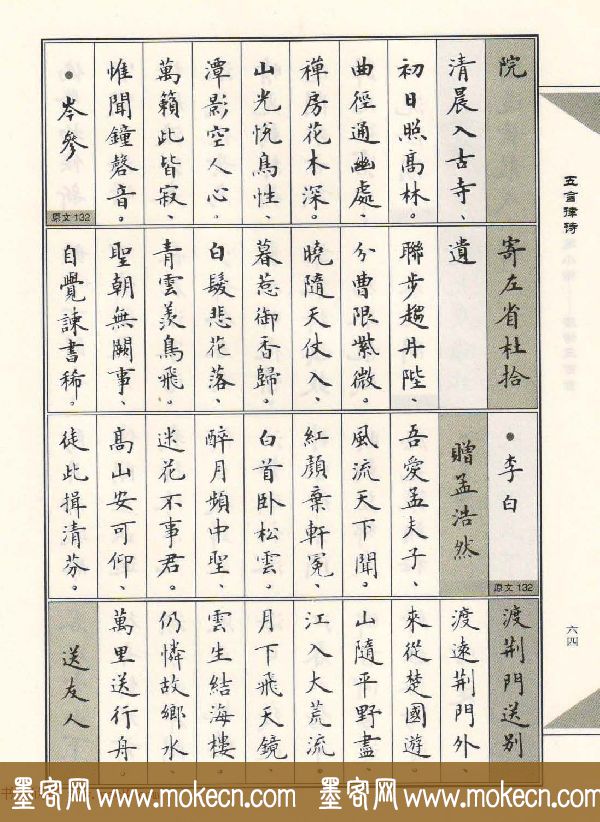 五言律诗
六四
院
清晨入古寺、
初日照高林。
曲徑通幽處、
禅房花木深。
山光悅鳥性、
潭影空人心。
萬籟此皆寂、
惟聞鐘磬音。
•岑參
原文132
寄左省杜拾
遺
聯步趨丹陛、
分曹限紫微。
曉隨天仗入、
暮惹御香歸。
白髮悲花落、
青雲羨鳥飛。
聖朝無闕事、
自覺諫書稀。
•李白
原文132
贈孟浩然
吾愛孟夫子、
風流天下聞。
紅顏棄軒冕、
白首臥松雲。
醉月頻中聖、
迷花不事君。
高山安可仰、
徒此揖清芬。
渡荆門送别
渡遠荆門外、
來從楚國遊。
山隨平野盡、
江入大荒流。
月下飛天鏡、
雲生結海樓。
仍憐故鄉水、
萬里送行舟。
送友人
墨客网 www.mokecn.com 墨客网 www.mokecn.com